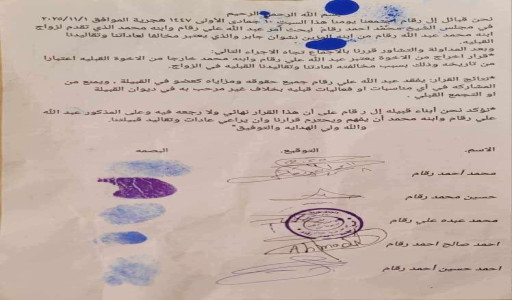 بسم الله الرحمن الرحيم
نحن قبائل آل رقام اجتمعنا يومنا هذا السبت ١٠ جمادى الأولى ١٤٤٧ هجرية الموافق ٢٠٢٥/١١/١
في مجلس الشيخ محمد احمد رقام لبحث أمر عبد الله علي رقام وابنه محمد الذي تقدم لزواج
ابنه محمد عبد الله رقام من ابنه المزين نشوان جابر والذي يعتبر مخالفا لعاداتنا وتقاليدنا
القبليه
وبعد المداولة والتشاور قررنا بالإجماع تجاه الاجراء التالي:
*قرار اخراج من الاخوة يعتبر عبد الله علي رقام وابنه محمد خارجا من الاخوة القبليه اعتبارا
من تاريخه وذلك بسبب مخالفته لعاداتنا وتقاليدنا القبليه في الزواج.
*نتائج القرار: يفقد عبد الله علي رقام جميع حقوقه ومزاياه كعضو في القبيلة . ويمنع من
المشاركه في أي مناسبات او فعاليات قبليه بخلاف غير مرحب به في ديوان القبيلة
او التجمع القبلي .
*نؤكد نحن أبناء قبيله إل رقام على أن هذا القرار نهائي ولا رجعه فيه وعلى المذكور عبد الله
علي رقام وابنه محمد أن يفهم ويحترم قرارنا وان يراعي عادات وتقاليد قبيلتنا.
والله ولي الهدايه والتوفيق*
الاسم. التوقيع. البصمه
محمد احمد رقام
حسين محمد رقام
محمد عبده علي رقام
احمد صالح احمد رقام Ahmed
احمد حسين احمد رقام